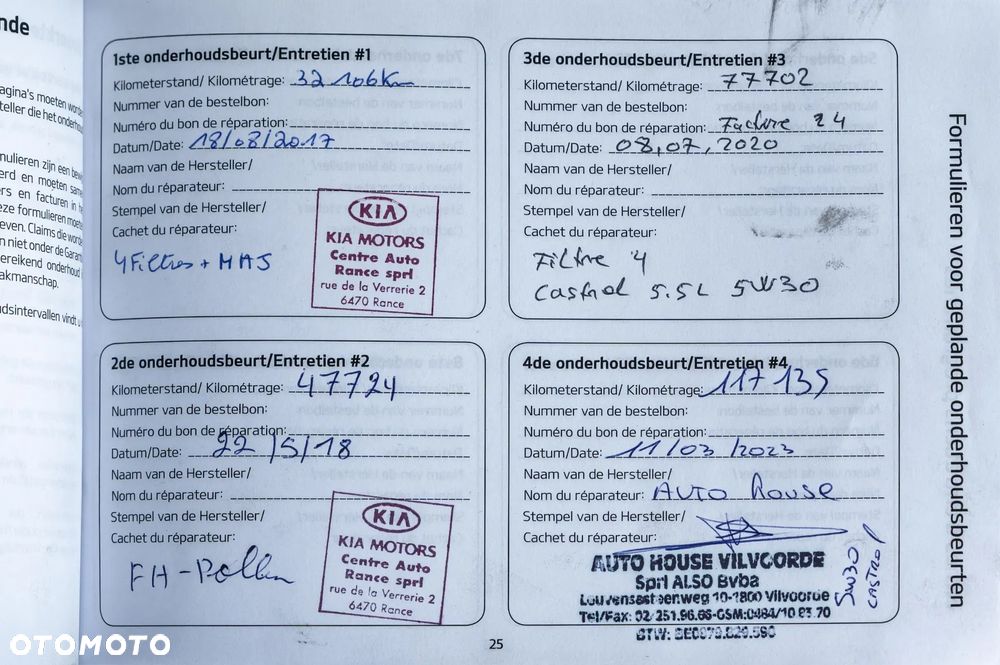 nde
agina's moeten
teller die het
mulieren zijn een
erd en moeten
ers en facturen in
eze formulieren
even. Claims die
n niet onder de
ereikend onderhoud
akmanschap.
udsintervallen vindt u
1ste onderhoudsbeurt/Entretien #1
Kilometerstand/ Kilométrage: 32 106Km
Nummer van de bestelbon:
Numéro du bon de réparation:
Datum/Date: 18/08/2017
Naam van de Hersteller/
Nom du réparateur:
Stempel van de Hersteller/
Cachet du réparateur:
4 Filtres + MAJ
KIA
KIA MOTORS
Centre Auto
Rance sprl
rue de la Verrerie 2
6470 Rance
2de onderhoudsbeurt/Entretien #2
Kilometerstand/ Kilométrage: 47724
Nummer van de bestelbon:
Numéro du bon de réparation:
Datum/Date: 22/5/18
Naam van de Hersteller/
Nom du réparateur:
Stempel van de Hersteller/
Cachet du réparateur:
FH-Pollen
KIA
KIA MOTORS
Centre Auto
Rance sprl
rue de la Verrerie 2
6470 Rance
3de onderhoudsbeurt/Entretien #3
Kilometerstand/ Kilométrage: 77702
Nummer van de bestelbon:
Numéro du bon de réparation: Facture 24
Datum/Date: 08,07,2020
Naam van de Hersteller/
Nom du réparateur:
Stempel van de Hersteller/
Cachet du réparateur:
Filtre 4
Castrol 5.5L 5W30
4de onderhoudsbeurt/Entretien #4
Kilometerstand/ Kilométrage: 117 139
Nummer van de bestelbon:
Numéro du bon de réparation:
Datum/Date: 11/03/2023
Naam van de Hersteller/
Nom du réparateur: Auto House
Stempel van de Hersteller/
Cachet du réparateur:
AUTO HOUSE VILVOORDE
Sprl ALSO Bvba
Leuvensesteenweg 10-1800 Vilvoorde
Tel/Fax: 02/251.96.66-GSM:0484/10 83 70
BTW: BE0879.829.590
5W30
CASTROL
Formulieren voor geplande onderhoudsbeurten
25
OTOMOTO